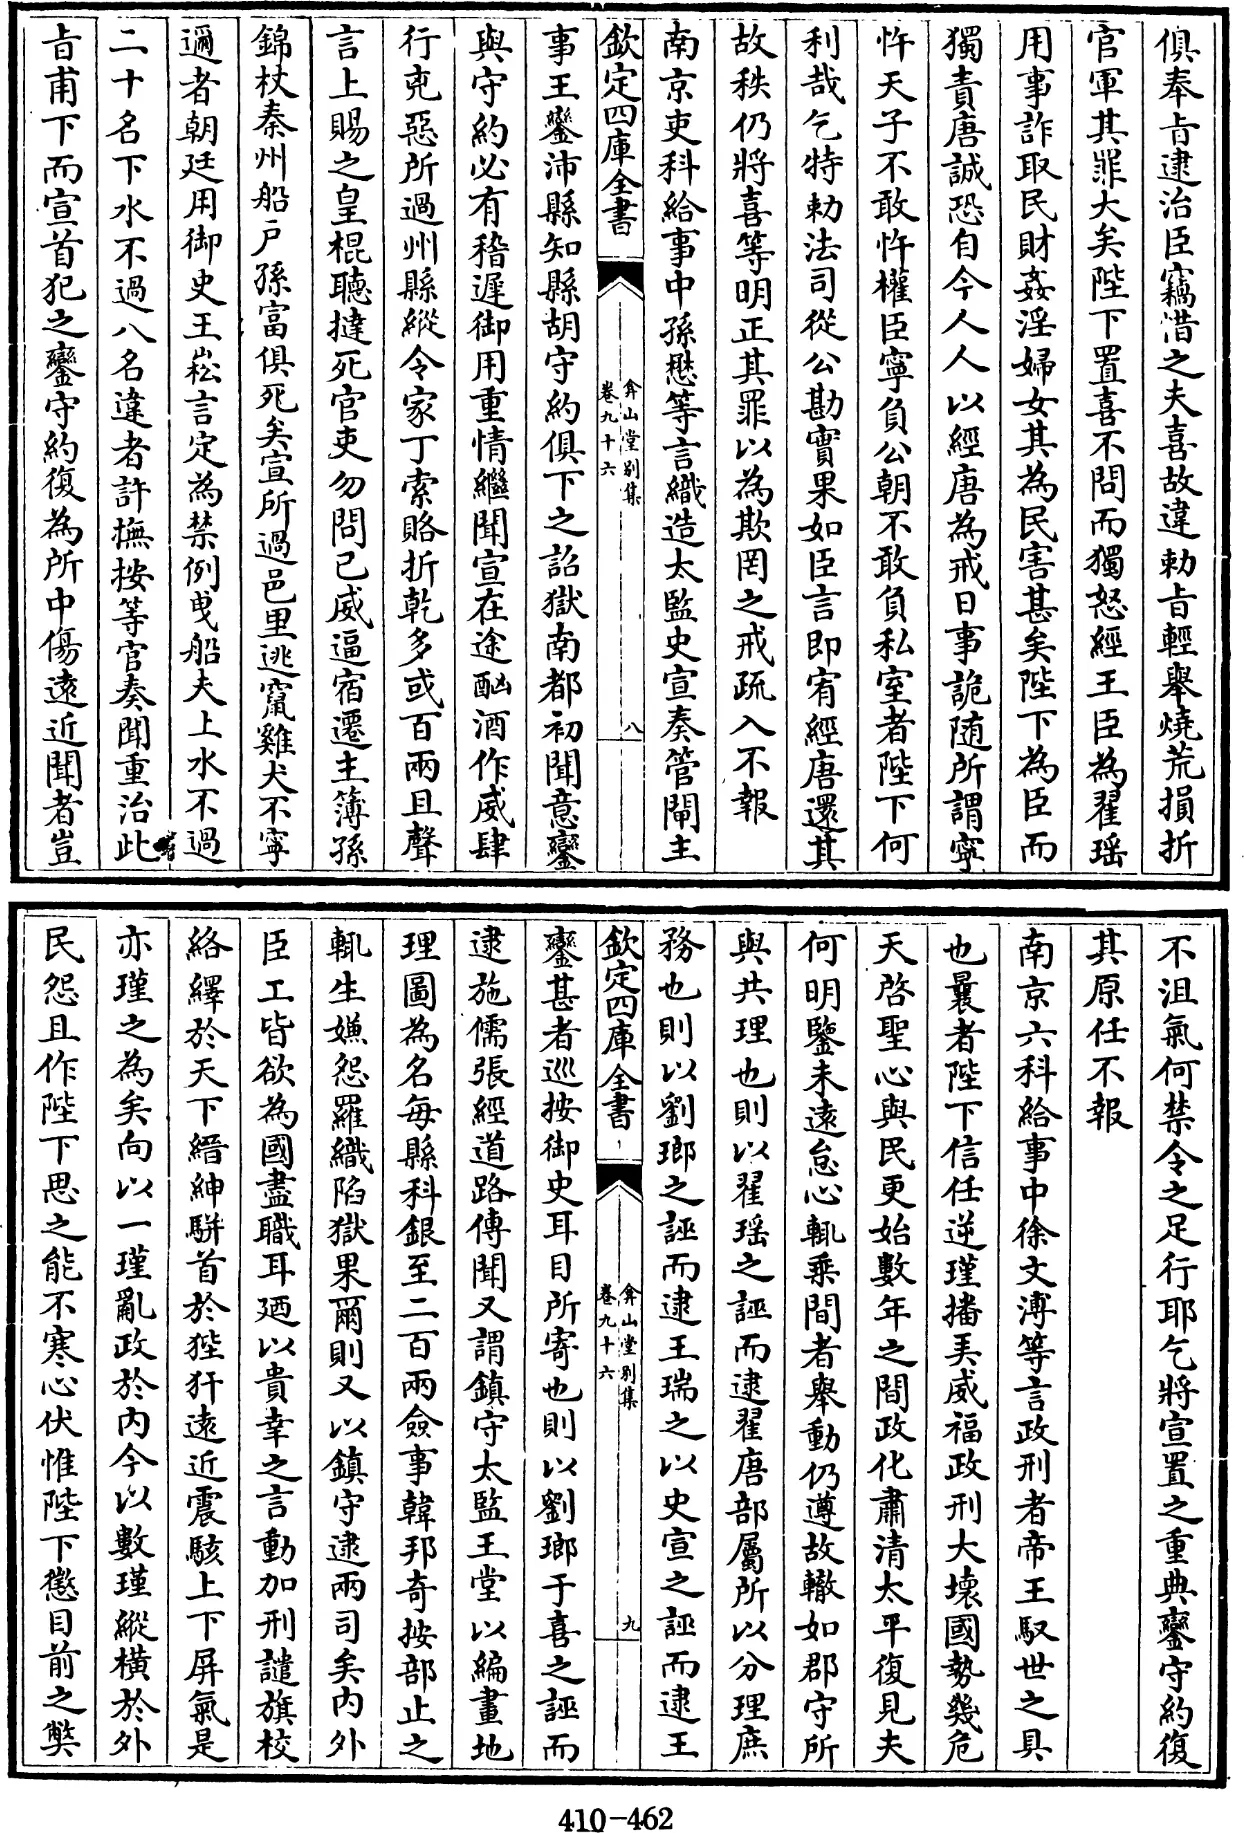 俱奉㫖逮治臣竊惜之夫喜故違勅㫖輕舉燒荒損折
官軍其罪大矣陛下置喜不問而獨怒經王臣為翟瑶
用事詐取民財姦淫婦女其為民害甚矣陛下為臣而
獨責唐誠恐自今人人以經唐為戒日事詭随所謂寧
忤天子不敢忤權臣寧負公朝不敢負私室者陛下何
利哉乞特勅法司從公勘實果如臣言即宥經唐還其
故秩仍將喜等明正其罪以為欺罔之戒疏入不報
南京吏科給事中孫懋等言織造太監史宣奏管閘主
欽定四庫全書
弇山堂别集
卷九十六
八
事王鑾沛縣知縣胡守約俱下之詔獄南都初聞意鑾
與守約必有稽遲御用重情繼聞宣在途酗酒作威肆
行兇惡所過州縣縱令家丁索賂折乾多或百兩且聲
言上賜之皇棍聽撻死官吏勿問已威逼宿遷主簿孫
錦杖秦州船戶孫富俱死矣宣所過邑里逃竄雞犬不寧
邇者朝廷用御史王崧言定為禁例曵船夫上水不過
二十名下水不過八名違者許撫按等官奏聞重治此
㫖甫下而宣首犯之鑾守約復為所中傷遠近聞者豈
不沮氣何禁令之足行耶乞將宣置之重典鑾守約復
其原任不報
南京六科給事中徐文溥等言政刑者帝王馭世之具
也曩者陛下信任逆瑾播弄威福政刑大壞國勢幾危
天啓聖心與民更始數年之間政化肅清太平復見夫
何明鑒未遠怠心輒乘間者舉動仍遵故轍如郡守所
與共理也則以翟瑶之誣而逮翟唐部屬所以分理庶
務也則以劉瑯之誣而逮王瑞之以史宣之誣而逮王
欽定四庫全書
弇山堂别集
卷九十六
九
鑾甚者巡按御史耳目所寄也則以劉瑯于喜之誣而
逮施儒張經道路傳聞又謂鎮守太監王堂以編畫地
理圖為名每縣科銀至二百兩僉事韓邦奇按部止之
輒生嫌怨羅織陷獄果爾則又以鎮守逮兩司矣内外
臣工皆欲為國盡職耳廼以貴幸之言動加刑譴旗校
絡繹於天下縉紳駢首於狴犴遠近震駭上下屏氣是
亦瑾之為矣向以一瑾亂政於内今以數瑾縱橫於外
民怨且作陛下思之能不寒心伏惟陛下懲目前之獘
410-462